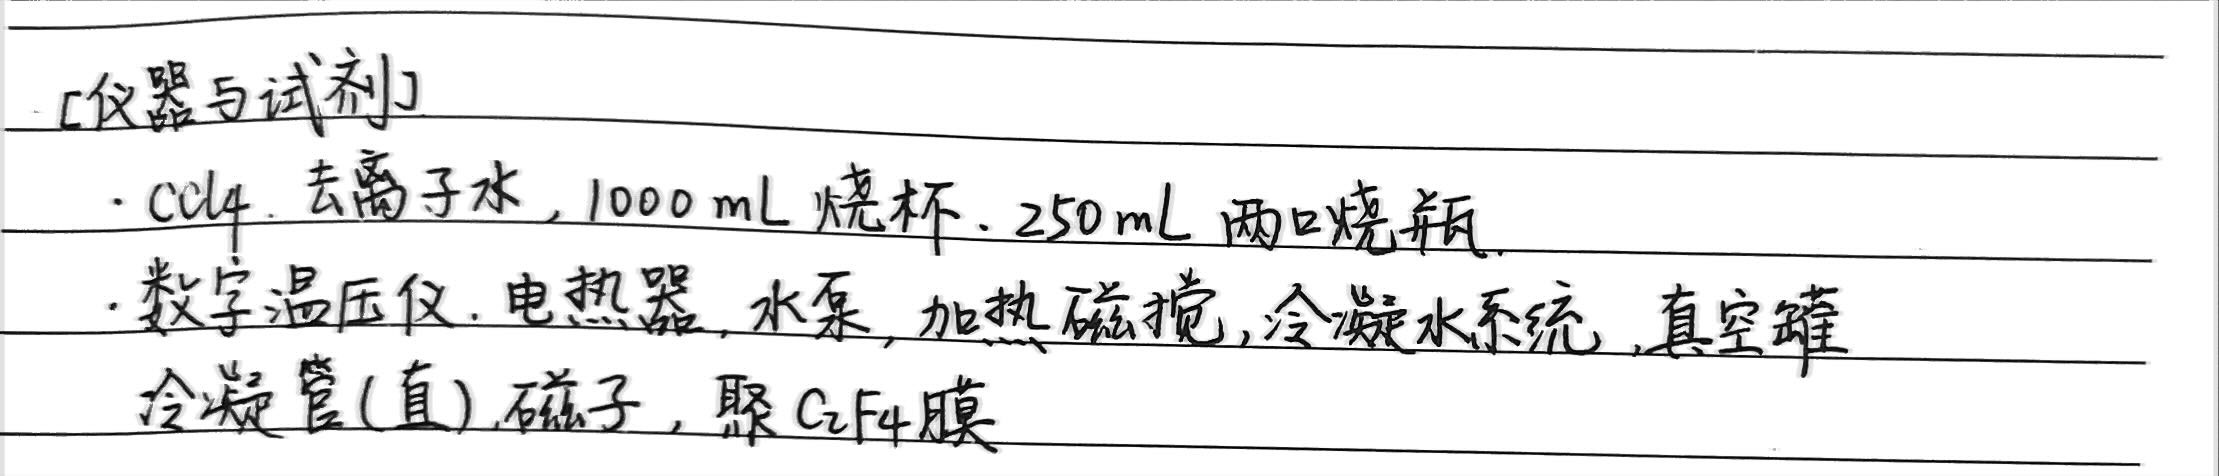 [仪器与试剂]
· CCl4. 去离子水, 1000 mL 烧杯. 250 mL 两口烧瓶.
· 数字温压仪. 电热器, 水泵, 加热磁搅, 冷凝水系统, 真空罐
冷凝管(直), 磁子, 聚C2F4膜